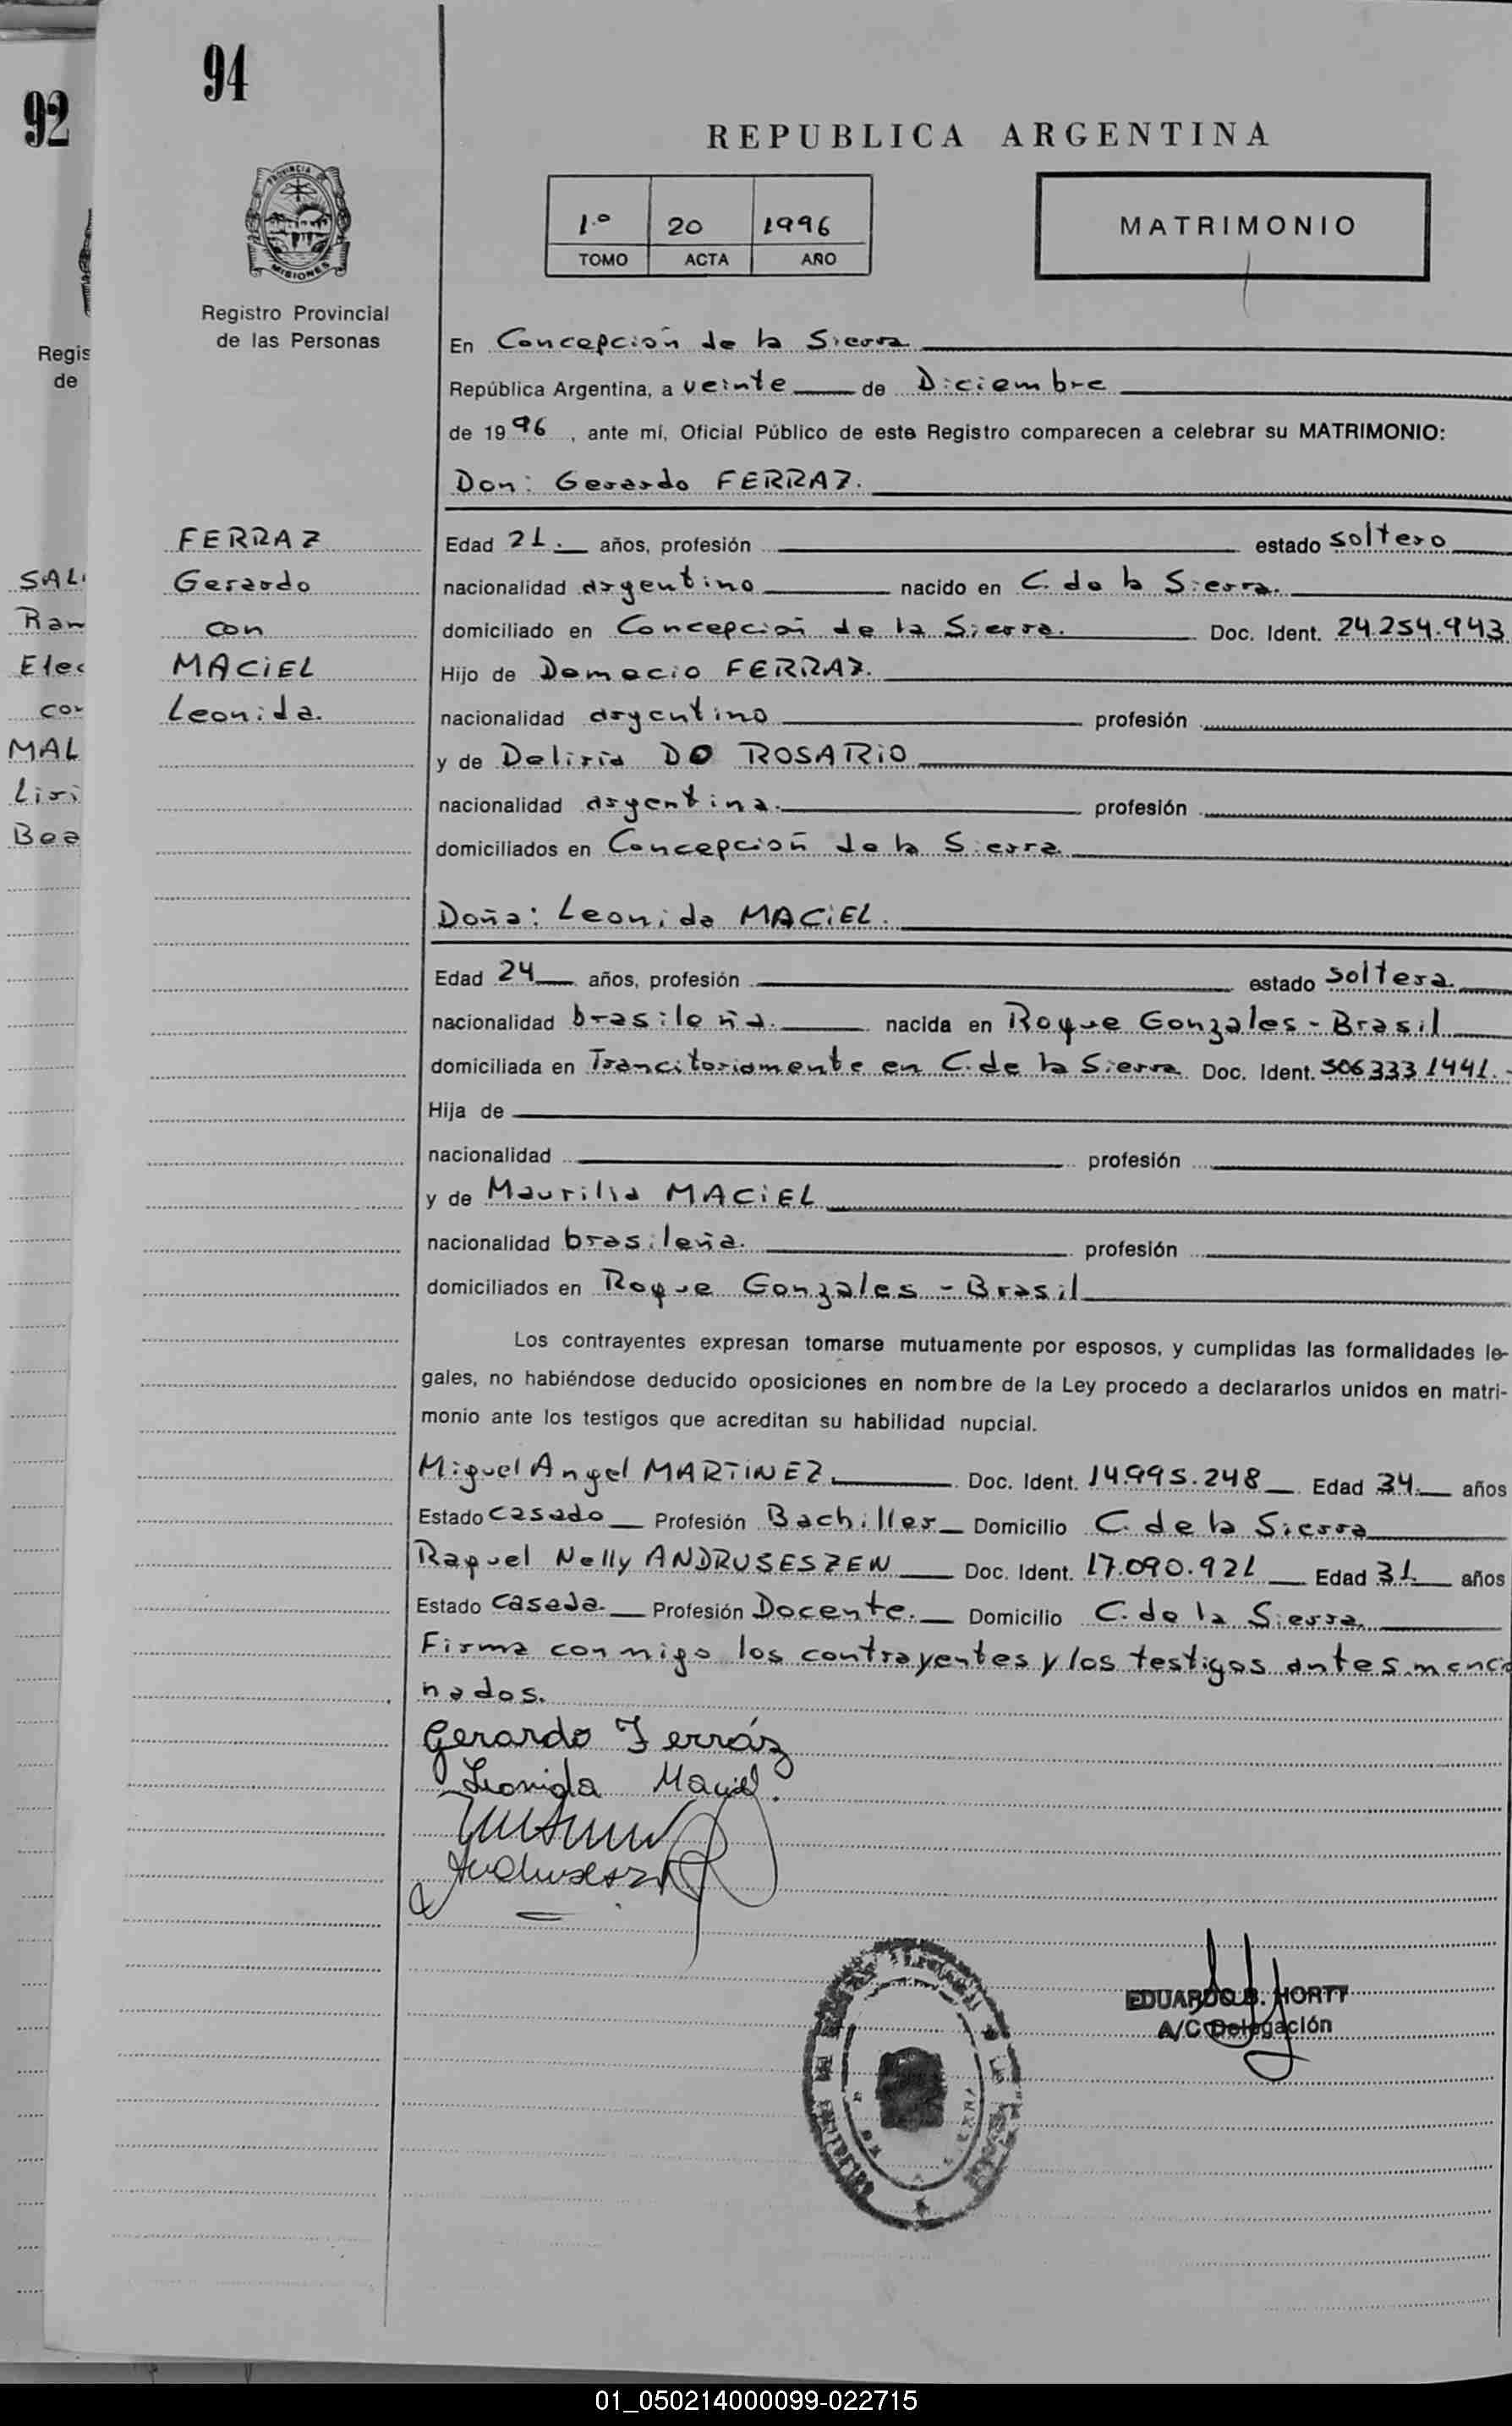 92
94
PROVINCIA DE
MISIONES
Registro Provincial
de las Personas
Regis
de
REPUBLICA ARGENTINA
1.º 20 1996
TOMO ACTA AÑO
MATRIMONIO
En Concepción de la Sierra
República Argentina, a veinte de Diciembre
de 1996, ante mí, Oficial Público de este Registro comparecen a celebrar su MATRIMONIO:
Don: Gerardo FERRAZ.
FERRAZ
Gerardo
con
MACiEL
Leonida.
SAL
Ram
Elec
con
MAL
Liri
Bea
Edad 21. años, profesión estado soltero
nacionalidad argentino nacido en C. de la Sierra.
domiciliado en Concepción de la Sierra. Doc. Ident. 24.254.943
Hijo de Domacio FERRAZ.
nacionalidad argentino profesión
y de Deliria DO ROSARiO
nacionalidad argentina. profesión
domiciliados en Concepción de la Sierra
Doña: Leonida MACiEL.
Edad 24 años, profesión estado soltera.
nacionalidad brasileña. nacida en Roque Gonzales - Brasil
domiciliada en Trancitoriamente en C. de la Sierra Doc. Ident. 5063331441.-
Hija de
nacionalidad profesión
y de Maurilia MACiEL
nacionalidad brasileña. profesión
domiciliados en Roque Gonzales - Brasil
Los contrayentes expresan tomarse mutuamente por esposos, y cumplidas las formalidades le-
gales, no habiéndose deducido oposiciones en nombre de la Ley procedo a declararlos unidos en matri-
monio ante los testigos que acreditan su habilidad nupcial.
Miguel Angel MARTiNEZ. Doc. Ident. 14.995.248 Edad 34. años
Estado casado Profesión Bachiller Domicilio C. de la Sierra
Raquel Nelly ANDRUSESZEN Doc. Ident. 17.090.921 Edad 31 años
Estado casada. Profesión Docente. Domicilio C. de la Sierra.
Firma con migo los contrayentes y los testigos antes mencio
nados.
Gerardo Ferráz
Leonida Maciel.
EDUARDO B. HORTT
A/C Delegación
01_050214000099-022715